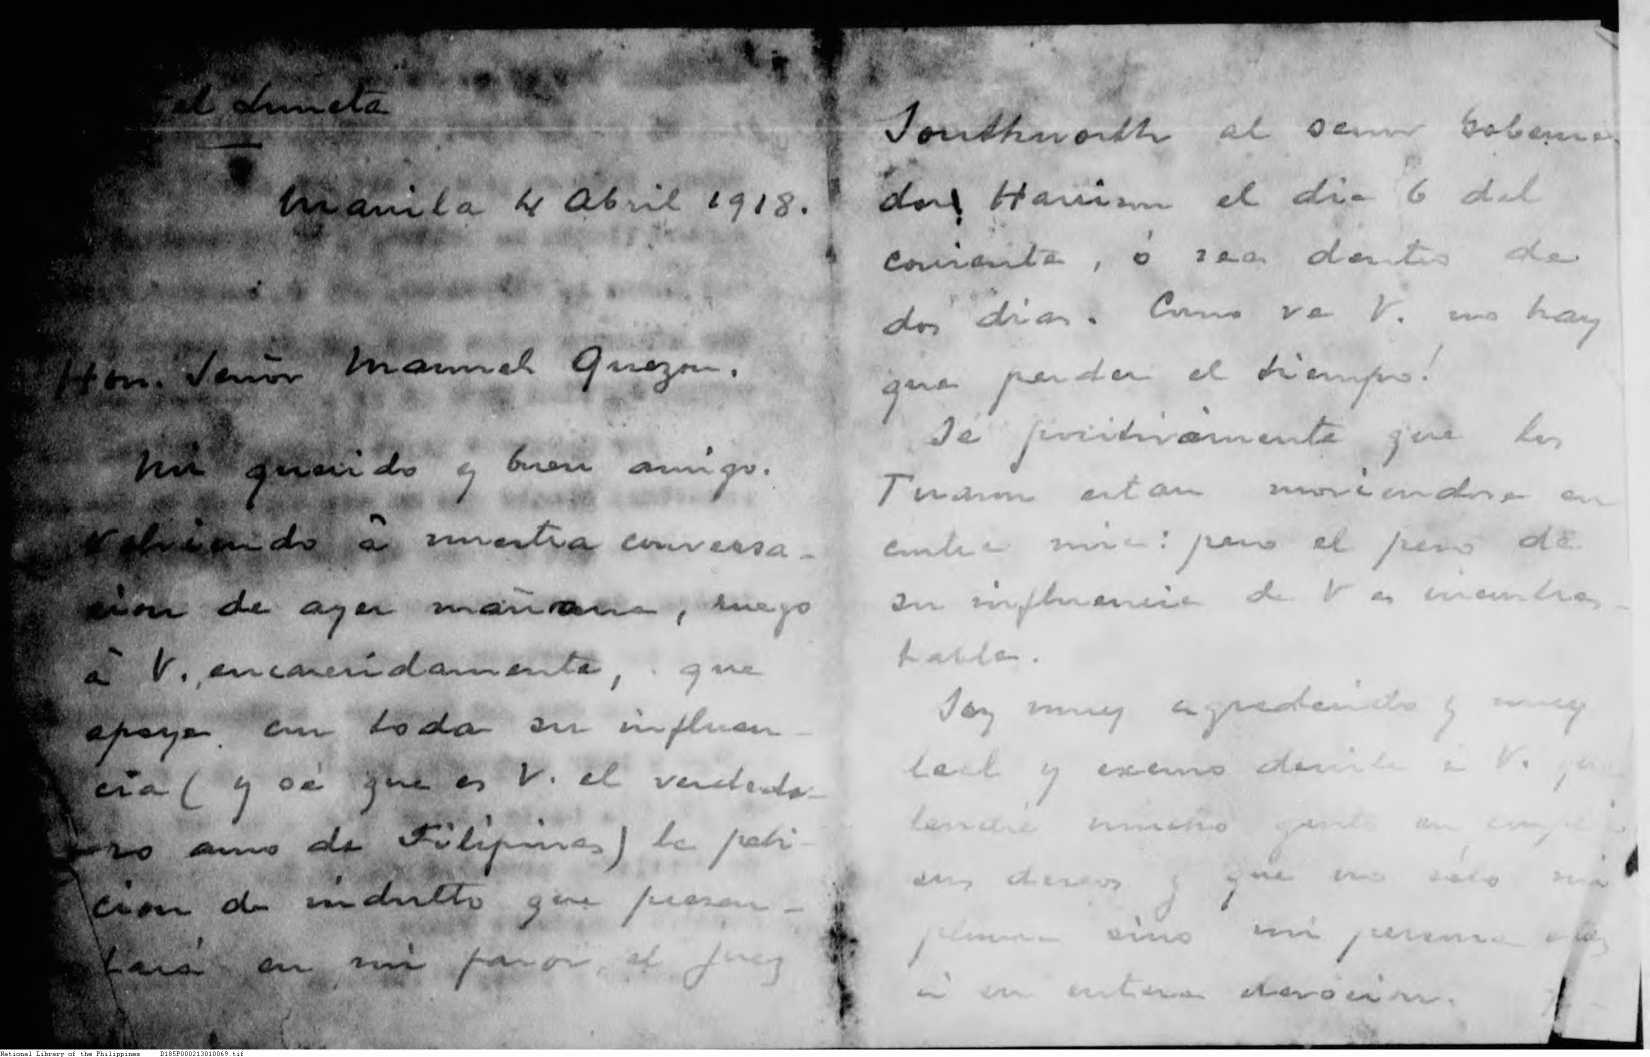 tel Luneta
Manila 4 Abril 1918.
Hon. Señor Manuel Quezon.
Mi querido y buen amigo.
Volviendo á nuestra conversa-
cion de ayer mañana, ruego
á V. encarecidamente, que
apoye con toda su influen-
cia (y sé que es V. el verdade-
ro amo de Filipinas) la peti-
cion de indulto que presen-
tará en mi favor, el juez
Southworth al señor Goberna
dor Harrison el dia 6 del
corriente, ó sea dentro de
dos dias. Como ve V. no hay
que perder el tiempo!
Sé positivamente que los
Tuason estan moviendose en
contra mia: pero el peso de
su influencia de V es incontras-
table.
Soy muy agradecido y muy
leal y excuso decirle á V. que
tendré mucho gusto en
sus deseos y que no sólo mi
pluma sino mi persona
á su entera devocion.
National Library of the Philippines D185P000213010069.tif